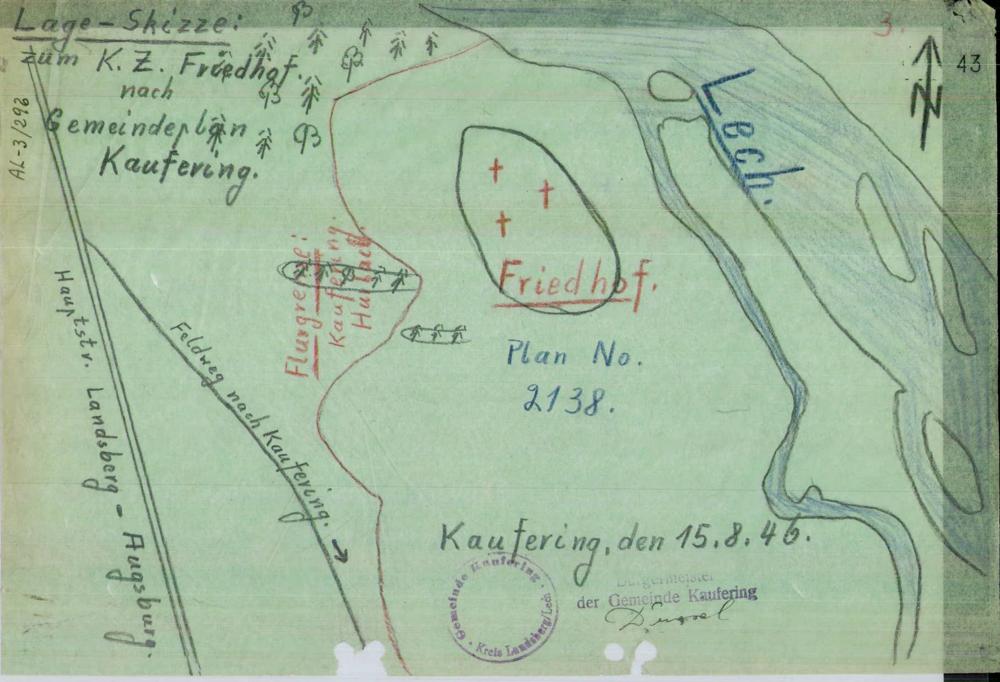 Lage-Skizze:
zum K. Z. Friedhof.
nach
Gemeindeplan
Kaufering.
AL-3/29b
3.
43
N
Lech.
Flurgrenze:
Kaufering.
Hurlach
Friedhof.
Plan No.
2138.
Hauptstr. Landsberg - Augsburg.
Feldweg nach Kaufering.
Kaufering, den 15.8.46.
Gemeinde Kaufering
Kreis Landsberg/Lech
Bürgermeister
der Gemeinde Kaufering